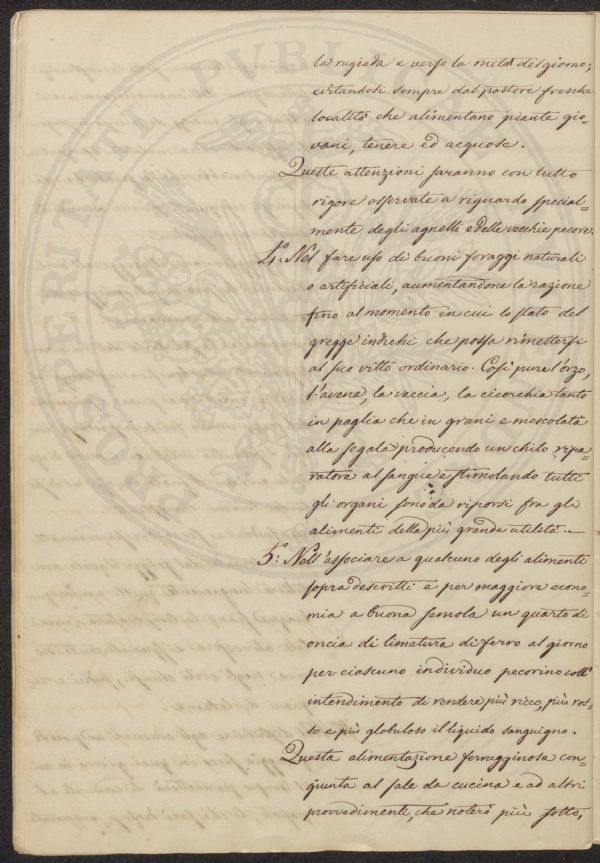 la rugiada e verso la metà del giorno;
evitandosi sempre dal pastore fresche
località che alimentano piante gio=
vani, tenere ed acquose.
Queste attenzioni saranno con tutto
rigore osservate a riguardo special=
mente degli agnelli e delle vecchie pecore.
4.° Nel fare uso di buoni foraggi naturali
o artificiali, aumentandone la razione
fino al momento in cui lo stato del
gregge indichi che possa rimettersi
al suo vitto ordinario. Così pure l'orzo,
l'avena, la veccia, la cicerchia tanto
in paglia che in grani e mescolata
alla segala producendo un chilo ripa=
ratore al sangue e stimolando tutti
gli organi sono da riporsi fra gli
alimenti della più grande utilità.
5.° Nell'associare a qualcuno degli alimenti
sopra descritti e per maggiore econo=
mia a buona semola un quarto di
oncia di limatura di ferro al giorno
per ciascuno individuo pecorino coll'
intendimento di rendere più ricco, più ros=
so e più globuloso il liquido sanguigno.
Questa alimentazione ferrugginosa con
giunta al sale da cucina e ad altri
provvedimenti, che noterò più sotto,
PROSPERITATI PVBLICAE